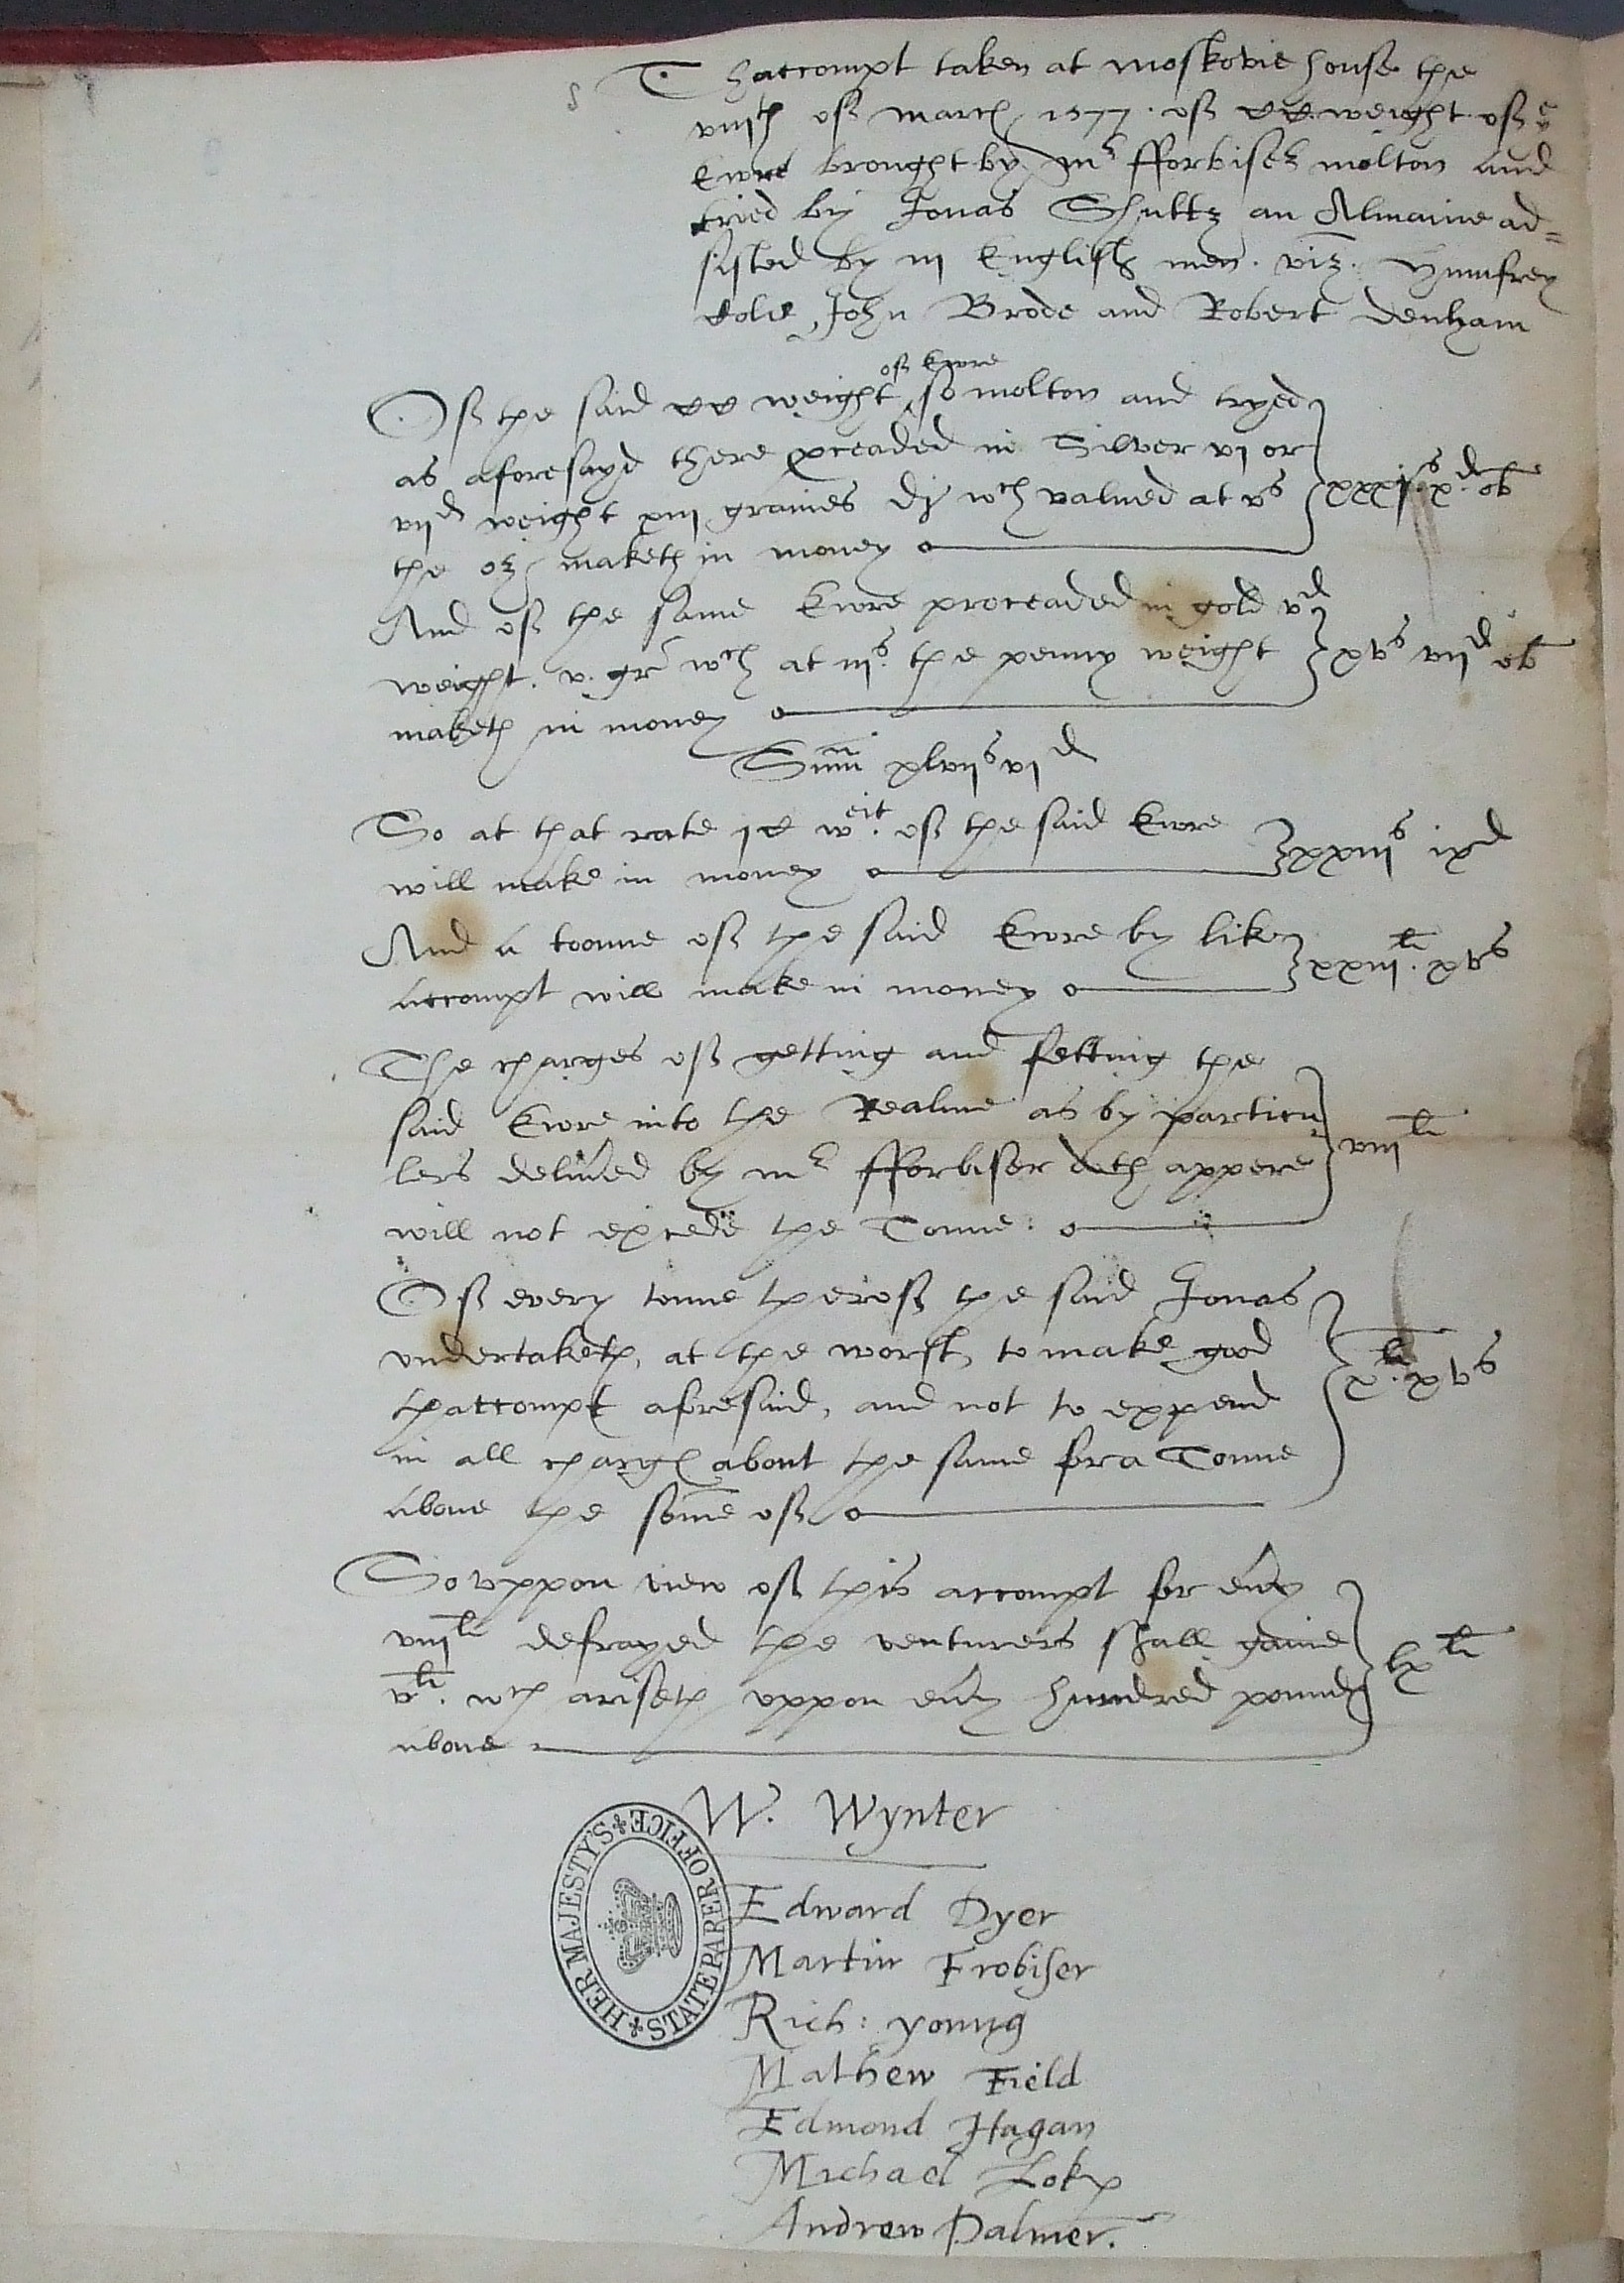 Thaccompt taken at moskovie house the
viijth of march 1577. of CC weight of ye
Ewre brought by mr fforbiser molton and
tried by Jonas Shuttz an Almaine ad=
sisted by iij English men. viz. Humfrey
Cole, John Brode and Robert Denham
of Ewre
Of the said CC weight so molton and tryed
as aforesayd there proceaded in Silver vj oz
vijd weight xiij graines di wch valued at vs
the oz maketh in money xxxjs xd ob
And of the same Ewre proceaded in gold vd
weight. v. gr wch at iijs the penny weight xvs vijd ob
maketh in money
Summ xlvijs vjd
So at that rate jC weit of the said Ewre
will make in money xxiijs ixd
And a toonne of the said Ewre by like
accompt will make in money xxiijli. xvs
The charges of getting and fetting the
said Ewre into the Realme as by particu
lers delived by mr fforbiser doth appere viijli
will not excede the Tonne:
Of every tonne therof the said Jonas
undertaketh, at the worst, to make good
thaccompt aforesaid, and not to expend xli. xvs
in all charges about the same for a Tonne
above the some of
So uppon view of this accompt for evry
viijli defrayed the venturers shall gaine
vli. wch ariseth uppon evry hundred pounde lxli
above
W. Wynter
Edward Dyer
Martin Frobiser
Rich: yonng
Mathew Field
Edmond Hogan
Michael Lok
Andrew Palmer.
HER MAJESTY'S STATE PAPER OFFICE